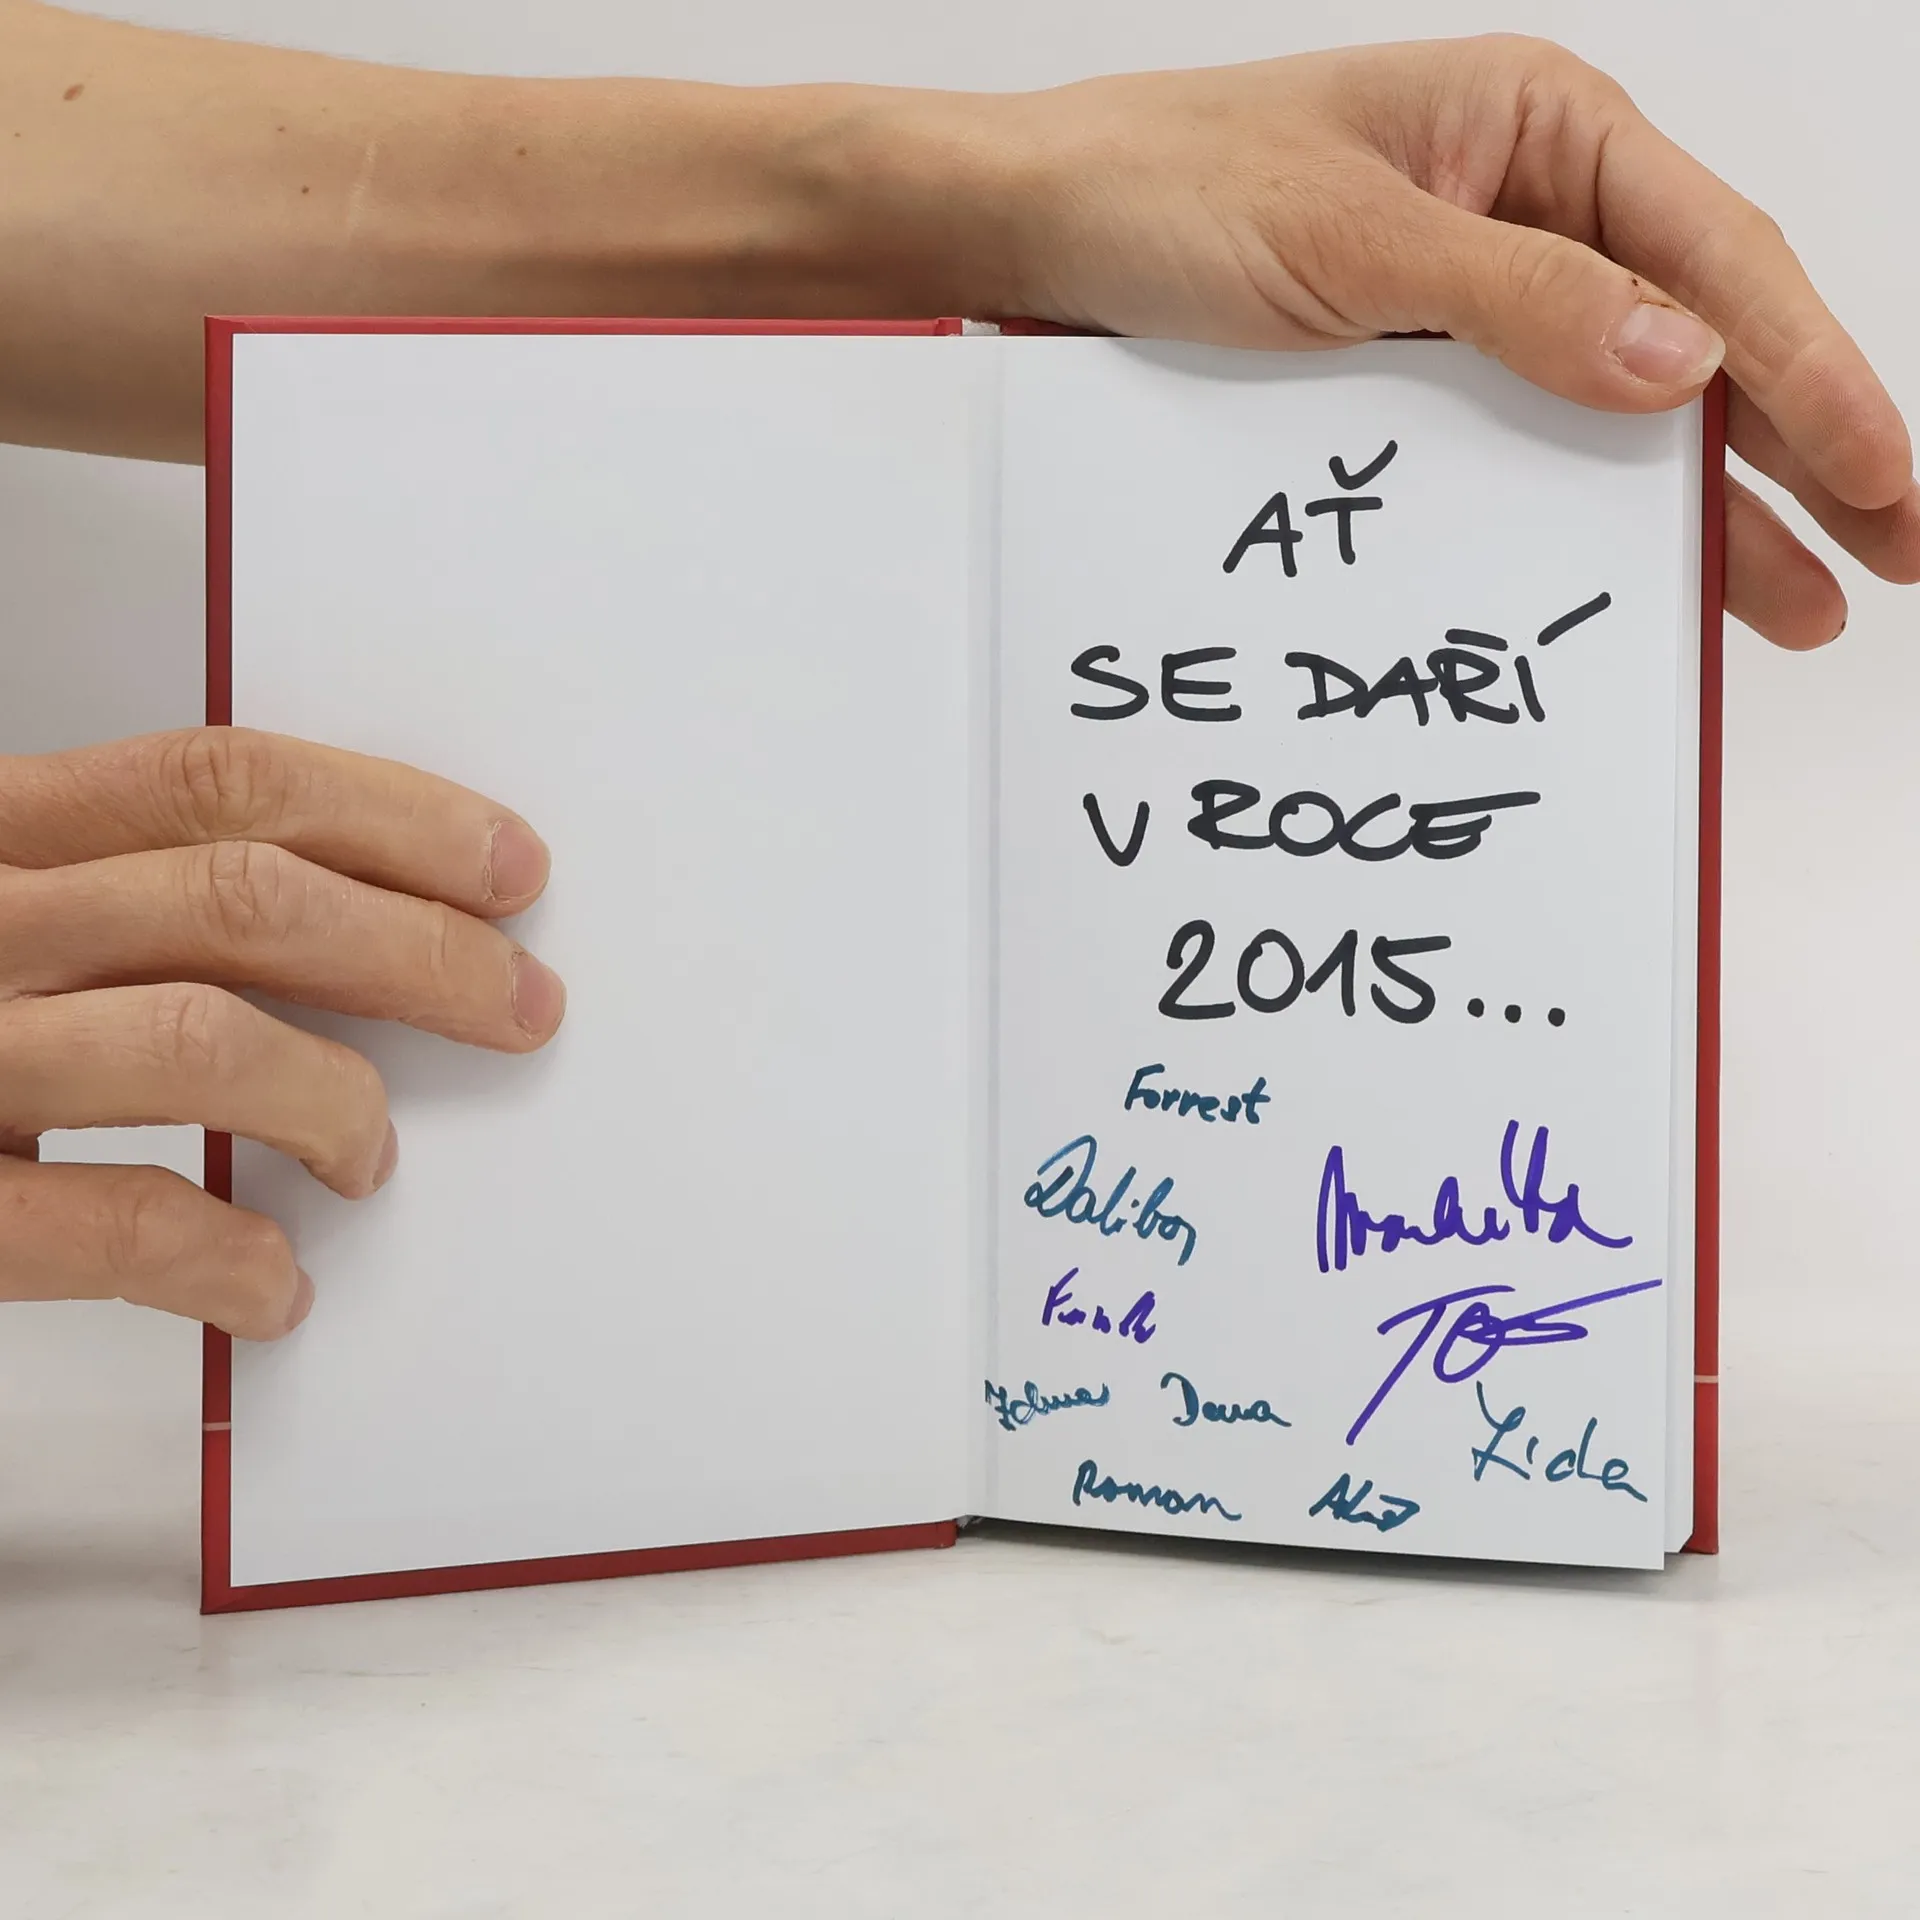 AŤ
SE DAŘÍ
V ROCE
2015...
Forrest
Dalibor
Markéta
Dana
Lída
Roman